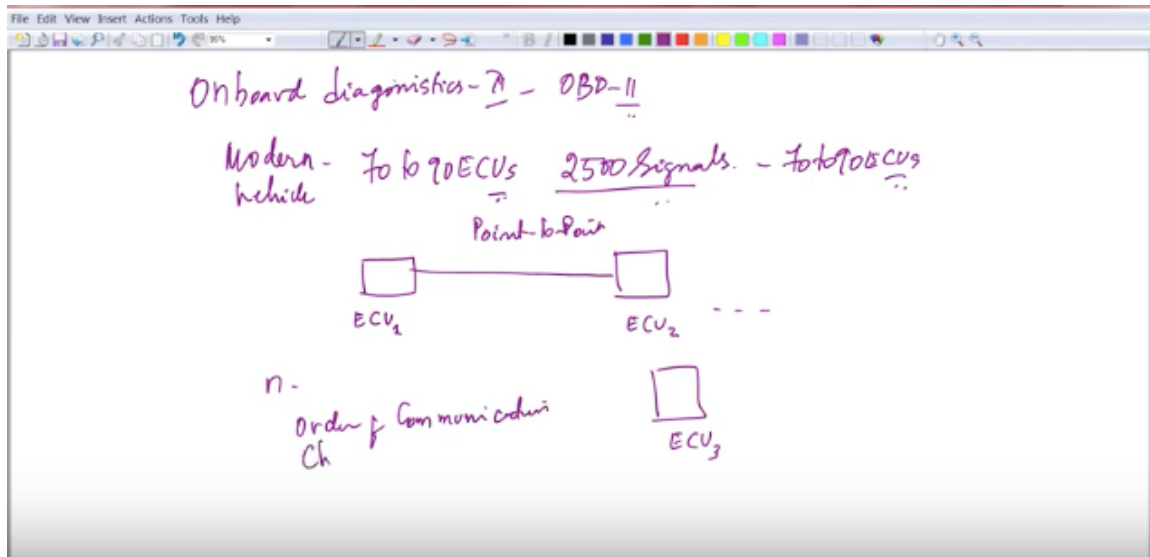 File Edit View Insert Actions Tools Help
Onboard diagonistics-II - OBD-II
Modern - 70 to 90 ECUs 2500 Signals. - 70 to 90 ECUs
Vehicle
Point-to-Point
ECU1 ECU2 - - -
n -
Order of Communication
Ch
ECU3